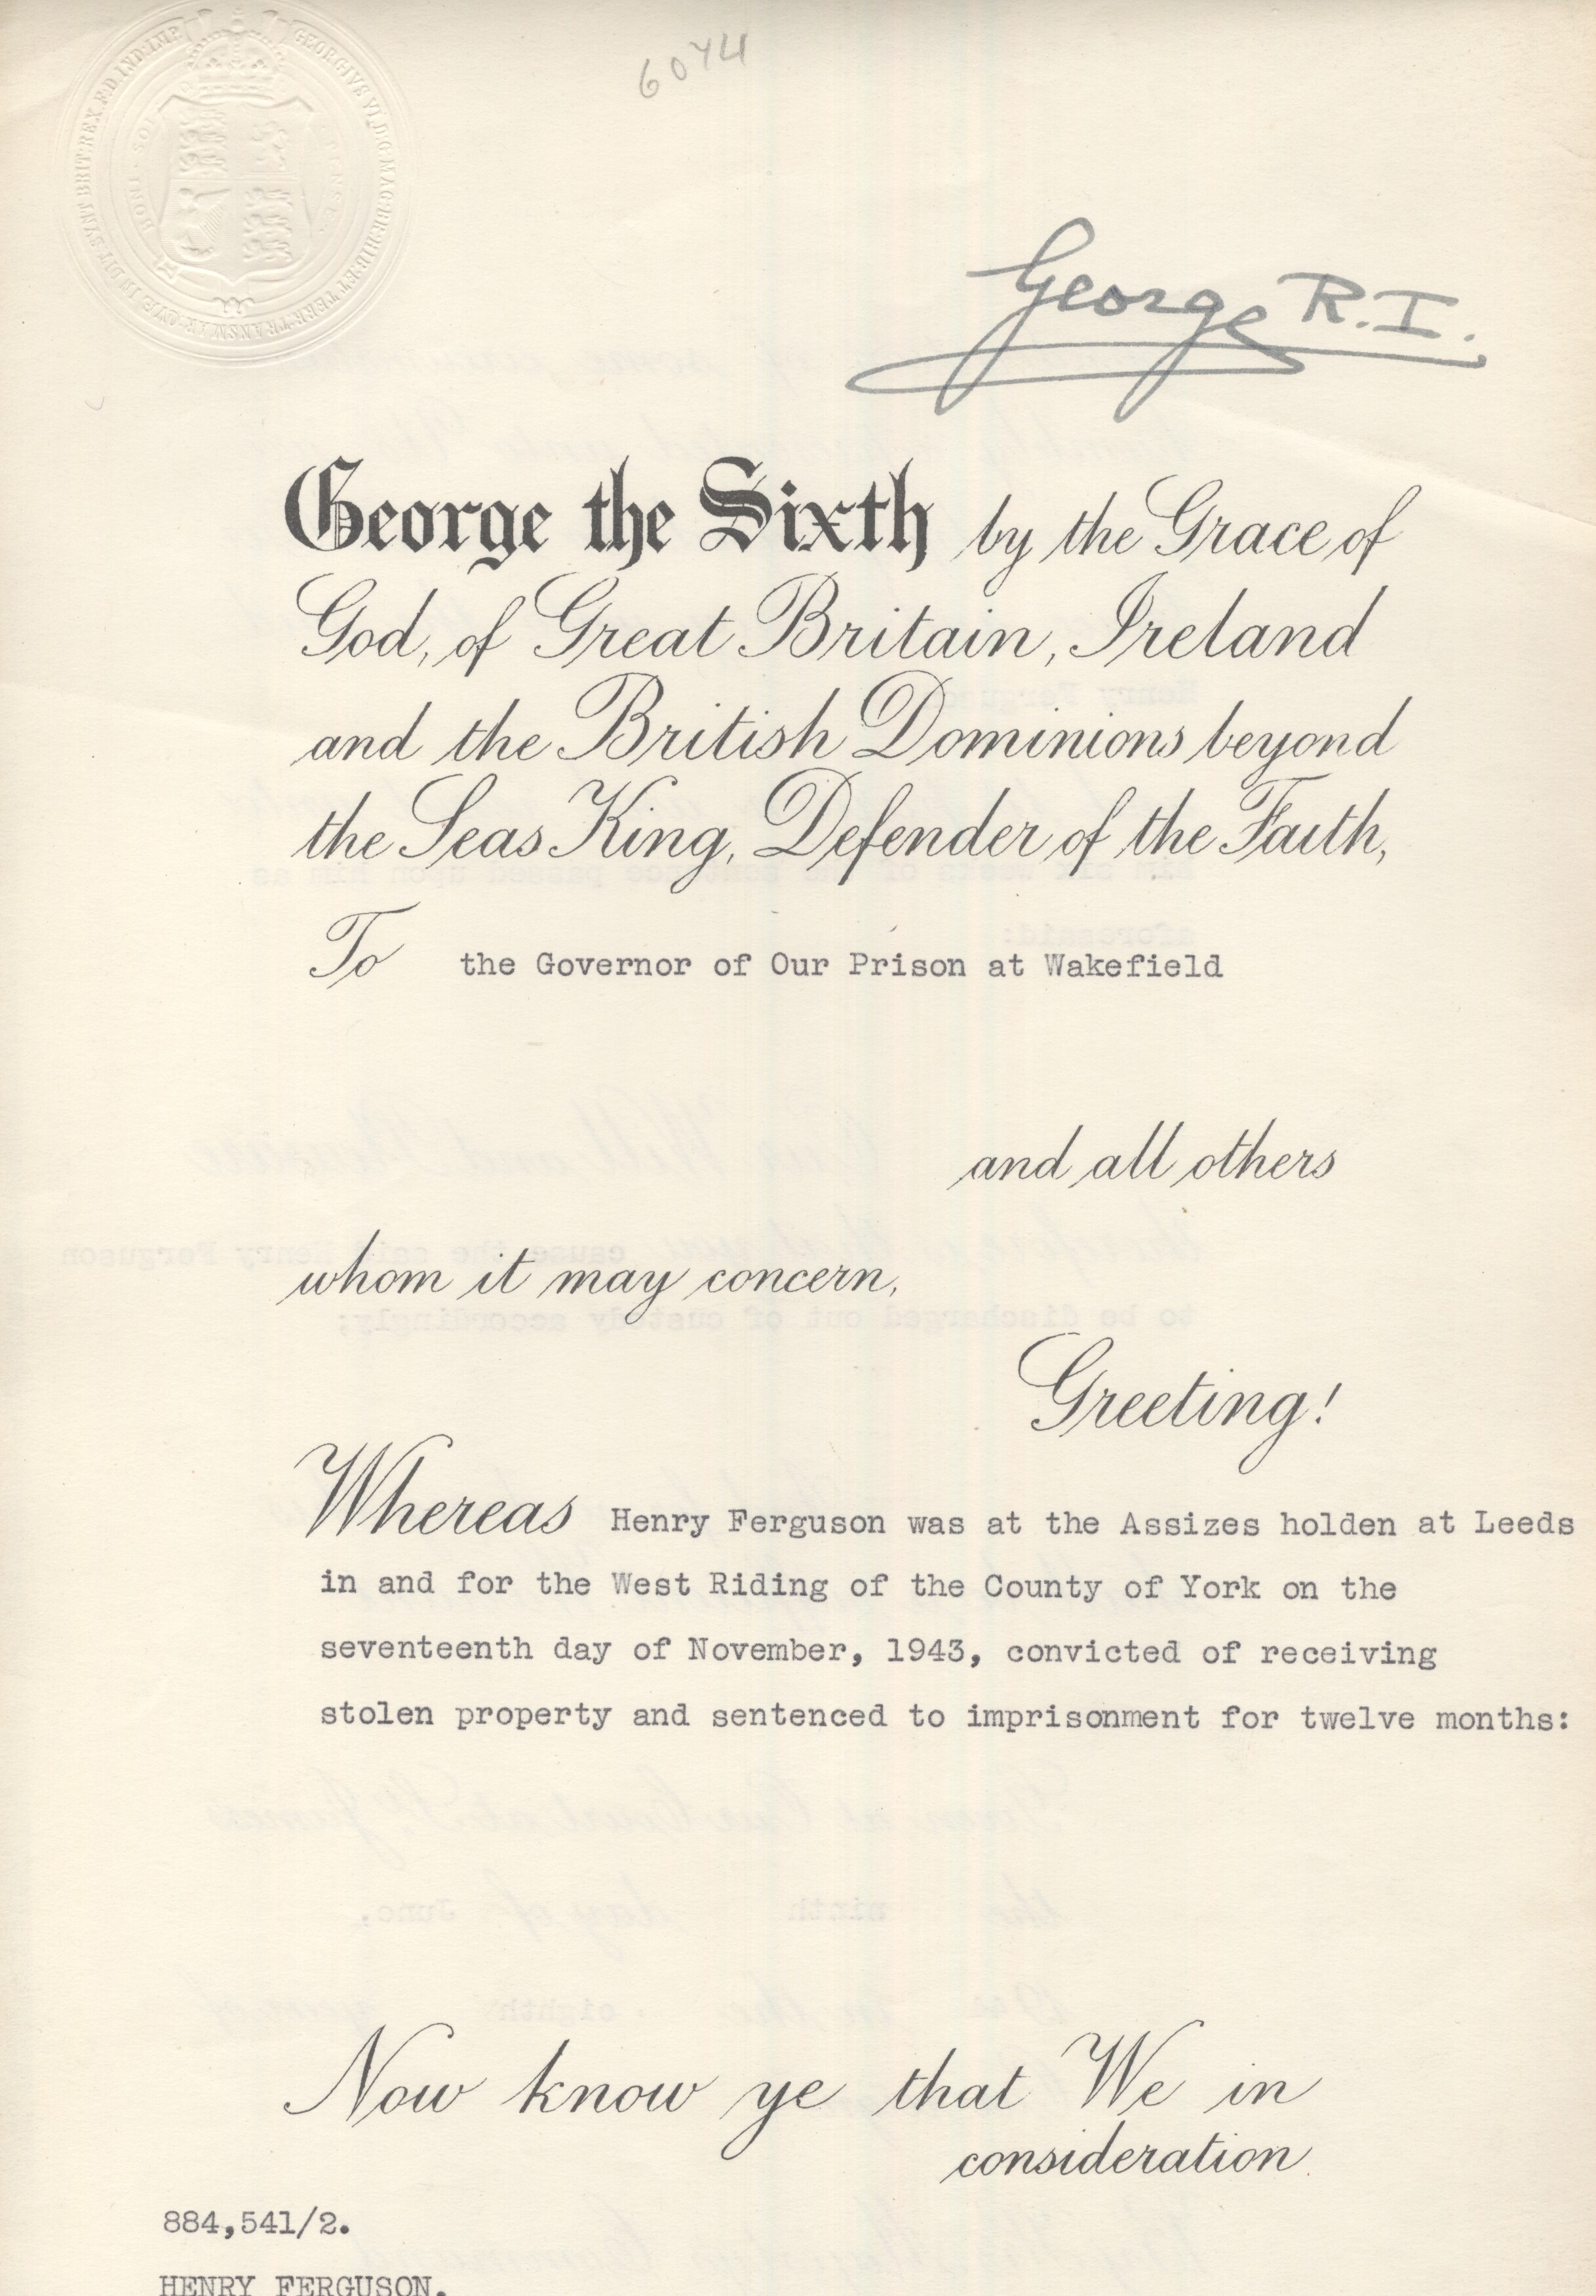 GEORGIVS VI D:G:MAG:BR:HIB:ET TERR:TRANSMAR:QVÆ IN DIT:SVNT BRIT:REX.F.D.IND:IMP
6074
George R.I.
George the Sixth by the Grace of
God, of Great Britain, Ireland
and the British Dominions beyond
the Seas King, Defender of the Faith,
To the Governor of Our Prison at Wakefield
and all others
whom it may concern,
Greeting!
Whereas Henry Ferguson was at the Assizes holden at Leeds
in and for the West Riding of the County of York on the
seventeenth day of November, 1943, convicted of receiving
stolen property and sentenced to imprisonment for twelve months:
Now know ye that We in
consideration
884,541/2.
HENRY FERGUSON.